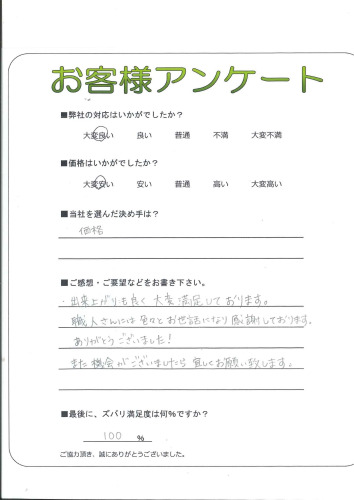 お客様アンケート
■弊社の対応はいかがでしたか？
大変良い 良い 普通 不満 大変不満
■価格はいかがでしたか？
大変安い 安い 普通 高い 大変高い
■当社を選んだ決め手は？
価格
■ご感想・ご要望などをお書き下さい。
・出来上がりも良く 大変満足しております。
職人さんには色々とお世話になり感謝しております。
ありがとうございました！
また機会がございましたら宜しくお願い致します。
■最後に、ズバリ満足度は何％ですか？
100 ％
ご協力頂き、誠にありがとうございました。